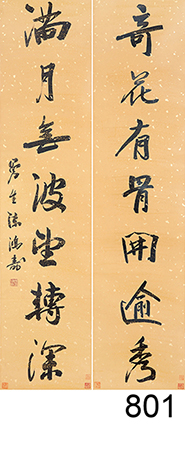 奇花有骨開逾秀
滿月無波望轉深
曼生陳鴻壽
801